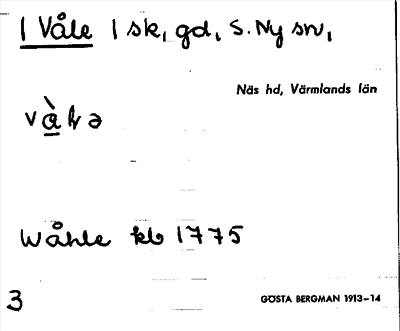 1 Våle 1 sk, gd, S. Ny sn,
Näs hd, Värmlands län
Wåhle kb 1775
3
GÖSTA BERGMAN 1913–14